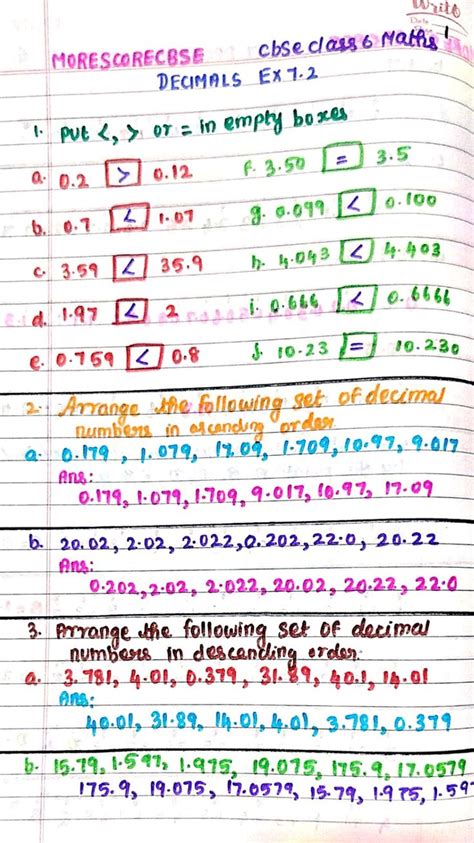 Write
Date
MORESCORECBSE cbse class 6 Maths 1
DECIMALS EX 7.2
1. Put <, > or = in empty boxes
a. 0.2 > 0.12 f. 3.50 = 3.5
b. 0.7 < 1.07 g. 0.099 < 0.100
c. 3.59 < 35.9 h. 4.043 < 4.403
d. 1.97 < 2 i. 0.666 < 0.6666
e. 0.759 < 0.8 j. 10.23 = 10.230
2. Arrange the following set of decimal
numbers in ascending order
a. 0.179, 1.079, 17.09, 1.709, 10.97, 9.017
Ans:
0.179, 1.079, 1.709, 9.017, 10.97, 17.09
b. 20.02, 2.02, 2.022, 0.202, 22.0, 20.22
Ans:
0.202, 2.02, 2.022, 20.02, 20.22, 22.0
3. Arrange the following set of decimal
numbers in descending order.
a. 3.781, 4.01, 0.379, 31.89, 40.1, 14.01
Ans:
40.01, 31.89, 14.01, 4.01, 3.781, 0.379
b. 15.79, 1.597, 1.975, 19.075, 175.9, 17.0579
175.9, 19.075, 17.0579, 15.79, 1.975, 1.59